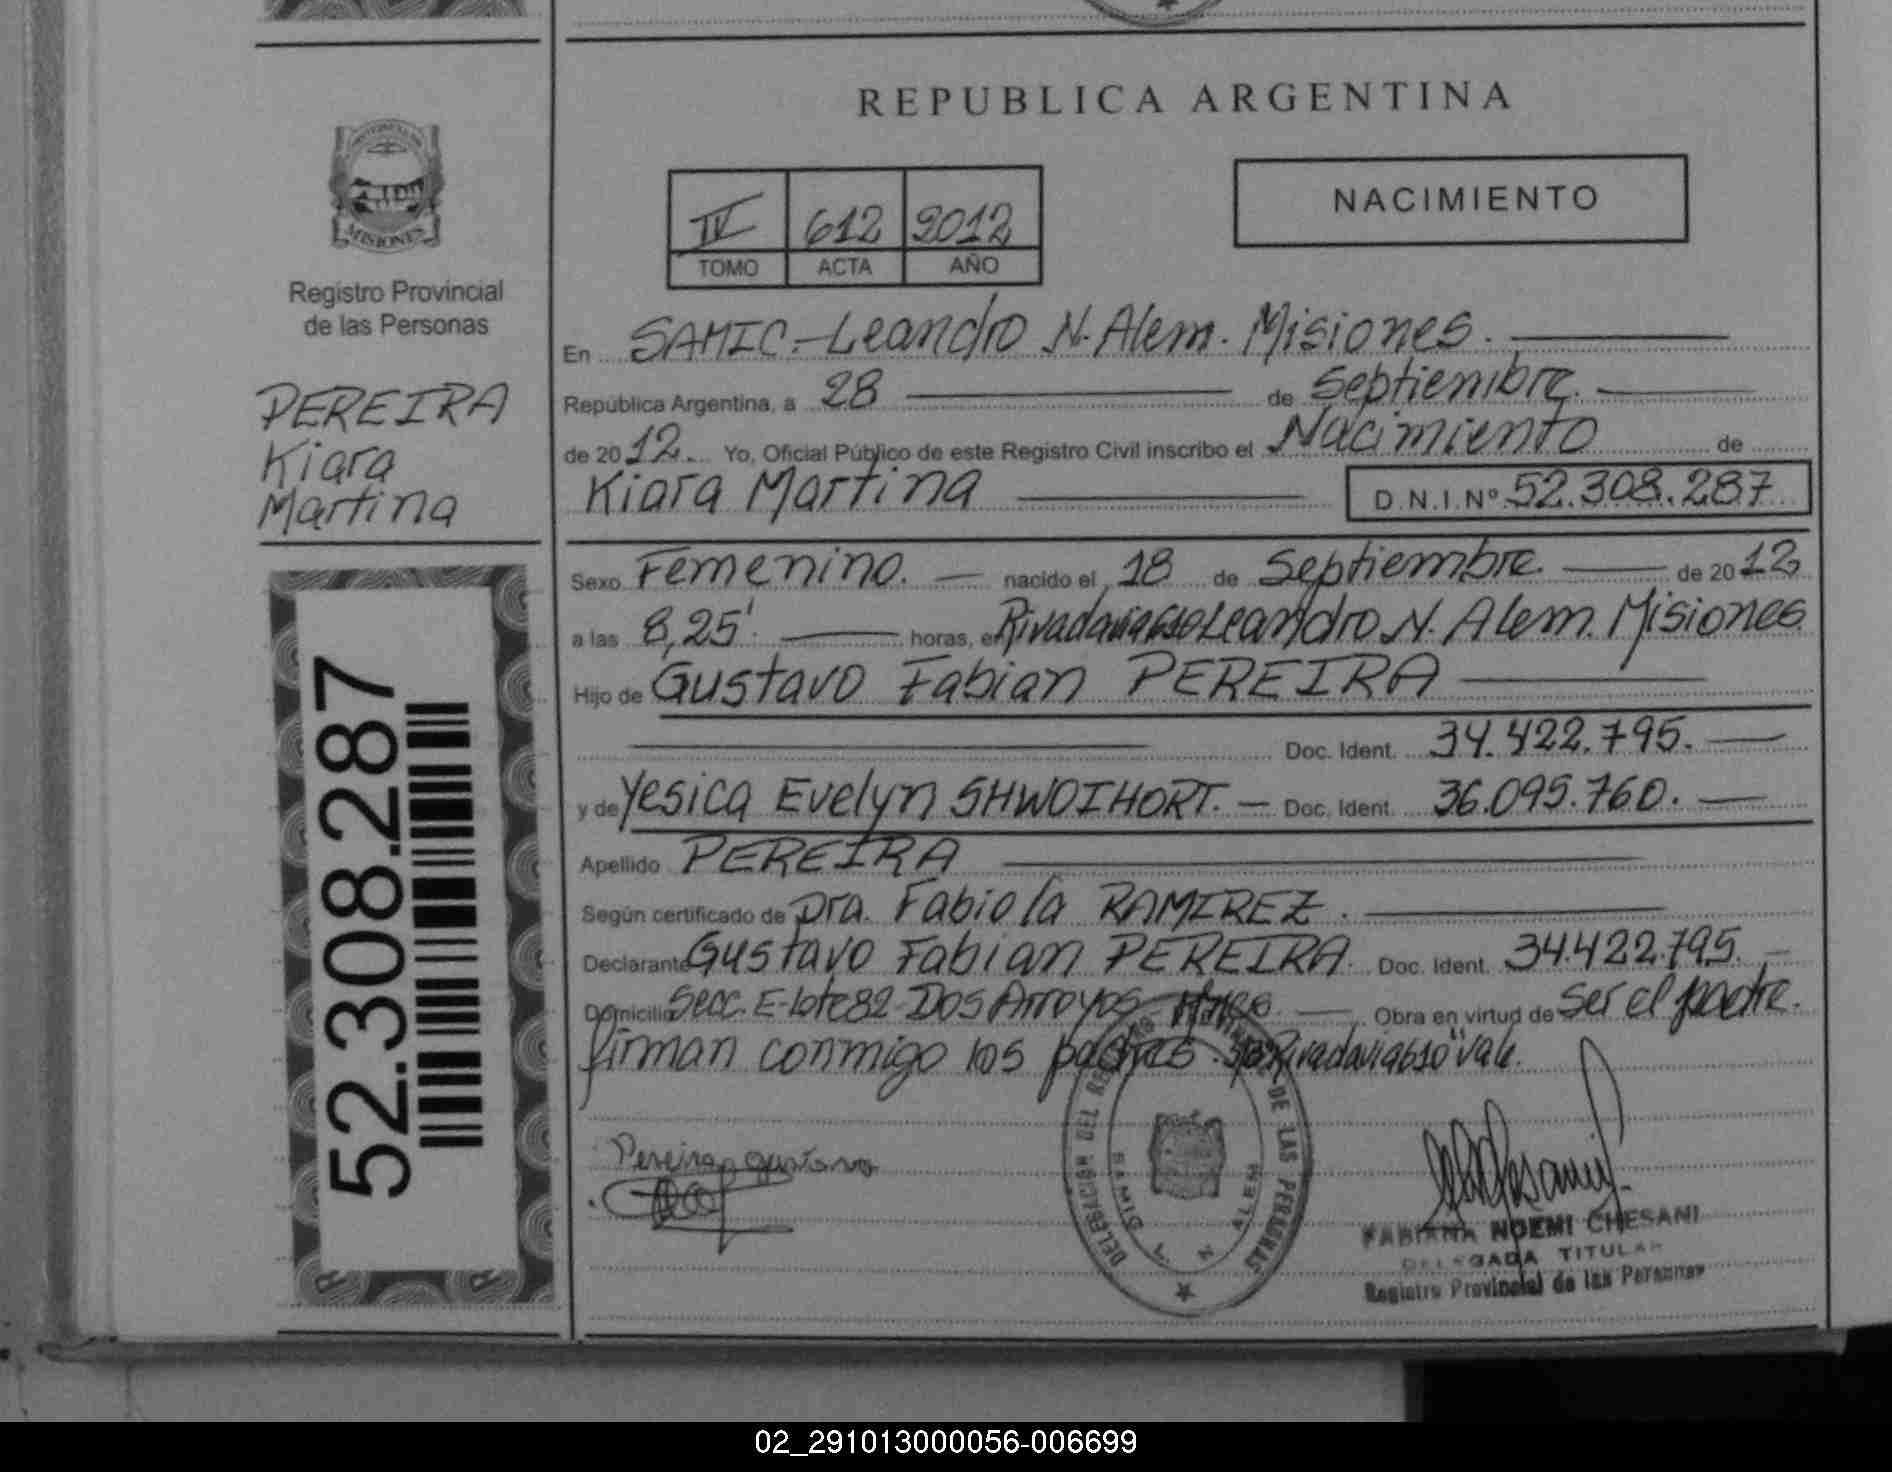 REPUBLICA ARGENTINA
MISIONES
Registro Provincial
de las Personas
PEREIRA
Kiara
Martina
52.308.287
IV 612 2012
TOMO ACTA AÑO
NACIMIENTO
En SAMIC.-Leandro N. Alem. Misiones.
República Argentina, a 28 de Septiembre.
de 2012. Yo, Oficial Público de este Registro Civil inscribo el Nacimiento de
Kiara Martina D.N.I.Nº 52.308.287
Sexo Femenino. nacido el 18 de Septiembre. de 2012,
a las 8,25'. horas, en Rivadavia 610 Leandro N. Alem. Misiones
Hijo de Gustavo Fabian PEREIRA
Doc. Ident. 34.422.795.
y de Yesica Evelyn SHWOIHORT. Doc. Ident. 36.095.760.
Apellido PEREIRA
Según certificado de Dra. Fabiola RAMIREZ.
Declarante Gustavo Fabian PEREIRA. Doc. Ident. 34.422.795.
Domicilio Secc. E-lote 82-Dos Arroyos- Obra en virtud de ser el padre.
firman conmigo los padres. Rivadavia 610" Vale.
Pereira gustavo
DELEGACION DEL REGISTRO PROVINCIAL DE LAS PERSONAS
SAMIC L N ALEM
FABIANA NOEMI CHESANI
DELEGADA TITULAR
Registro Provincial de las Personas
02_291013000056-006699